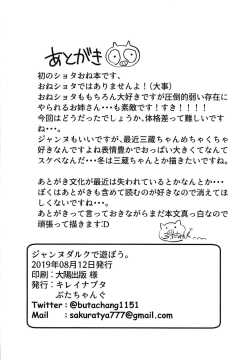 あとがき
初のショタおね本です、
おねショタではありませんよ！(大事)
おねショタももちろん大好きですが圧倒的弱い存在に
やられるお姉さん・・・も素敵です！すき！！！！
今回はどうだったでしょうか、体格差って難しいです
ね・・・。
ジャンヌもいいですが、最近三蔵ちゃんめちゃくちゃ
好きなんですよね表情豊かでおっぱい大きくてなんて
スケベなんだ・・・冬は三蔵ちゃんと描きたいですね。
あとがき文化が最近は失われているとかなんとか・・・
ぼくはあとがきも含めて読むのが好きなので消えてほ
しくないですね・・・。
あとがきって言っておきながらまだ本文真っ白なので
頑張って描きます:D
ジャンヌダルクで遊ぼう。
2019年08月12日発行
印刷：大陽出版 様
発行：キレイナブタ
ぶたちゃんぐ
Twitter：@butachang1151
Mail ：sakuratya777@gmail.com